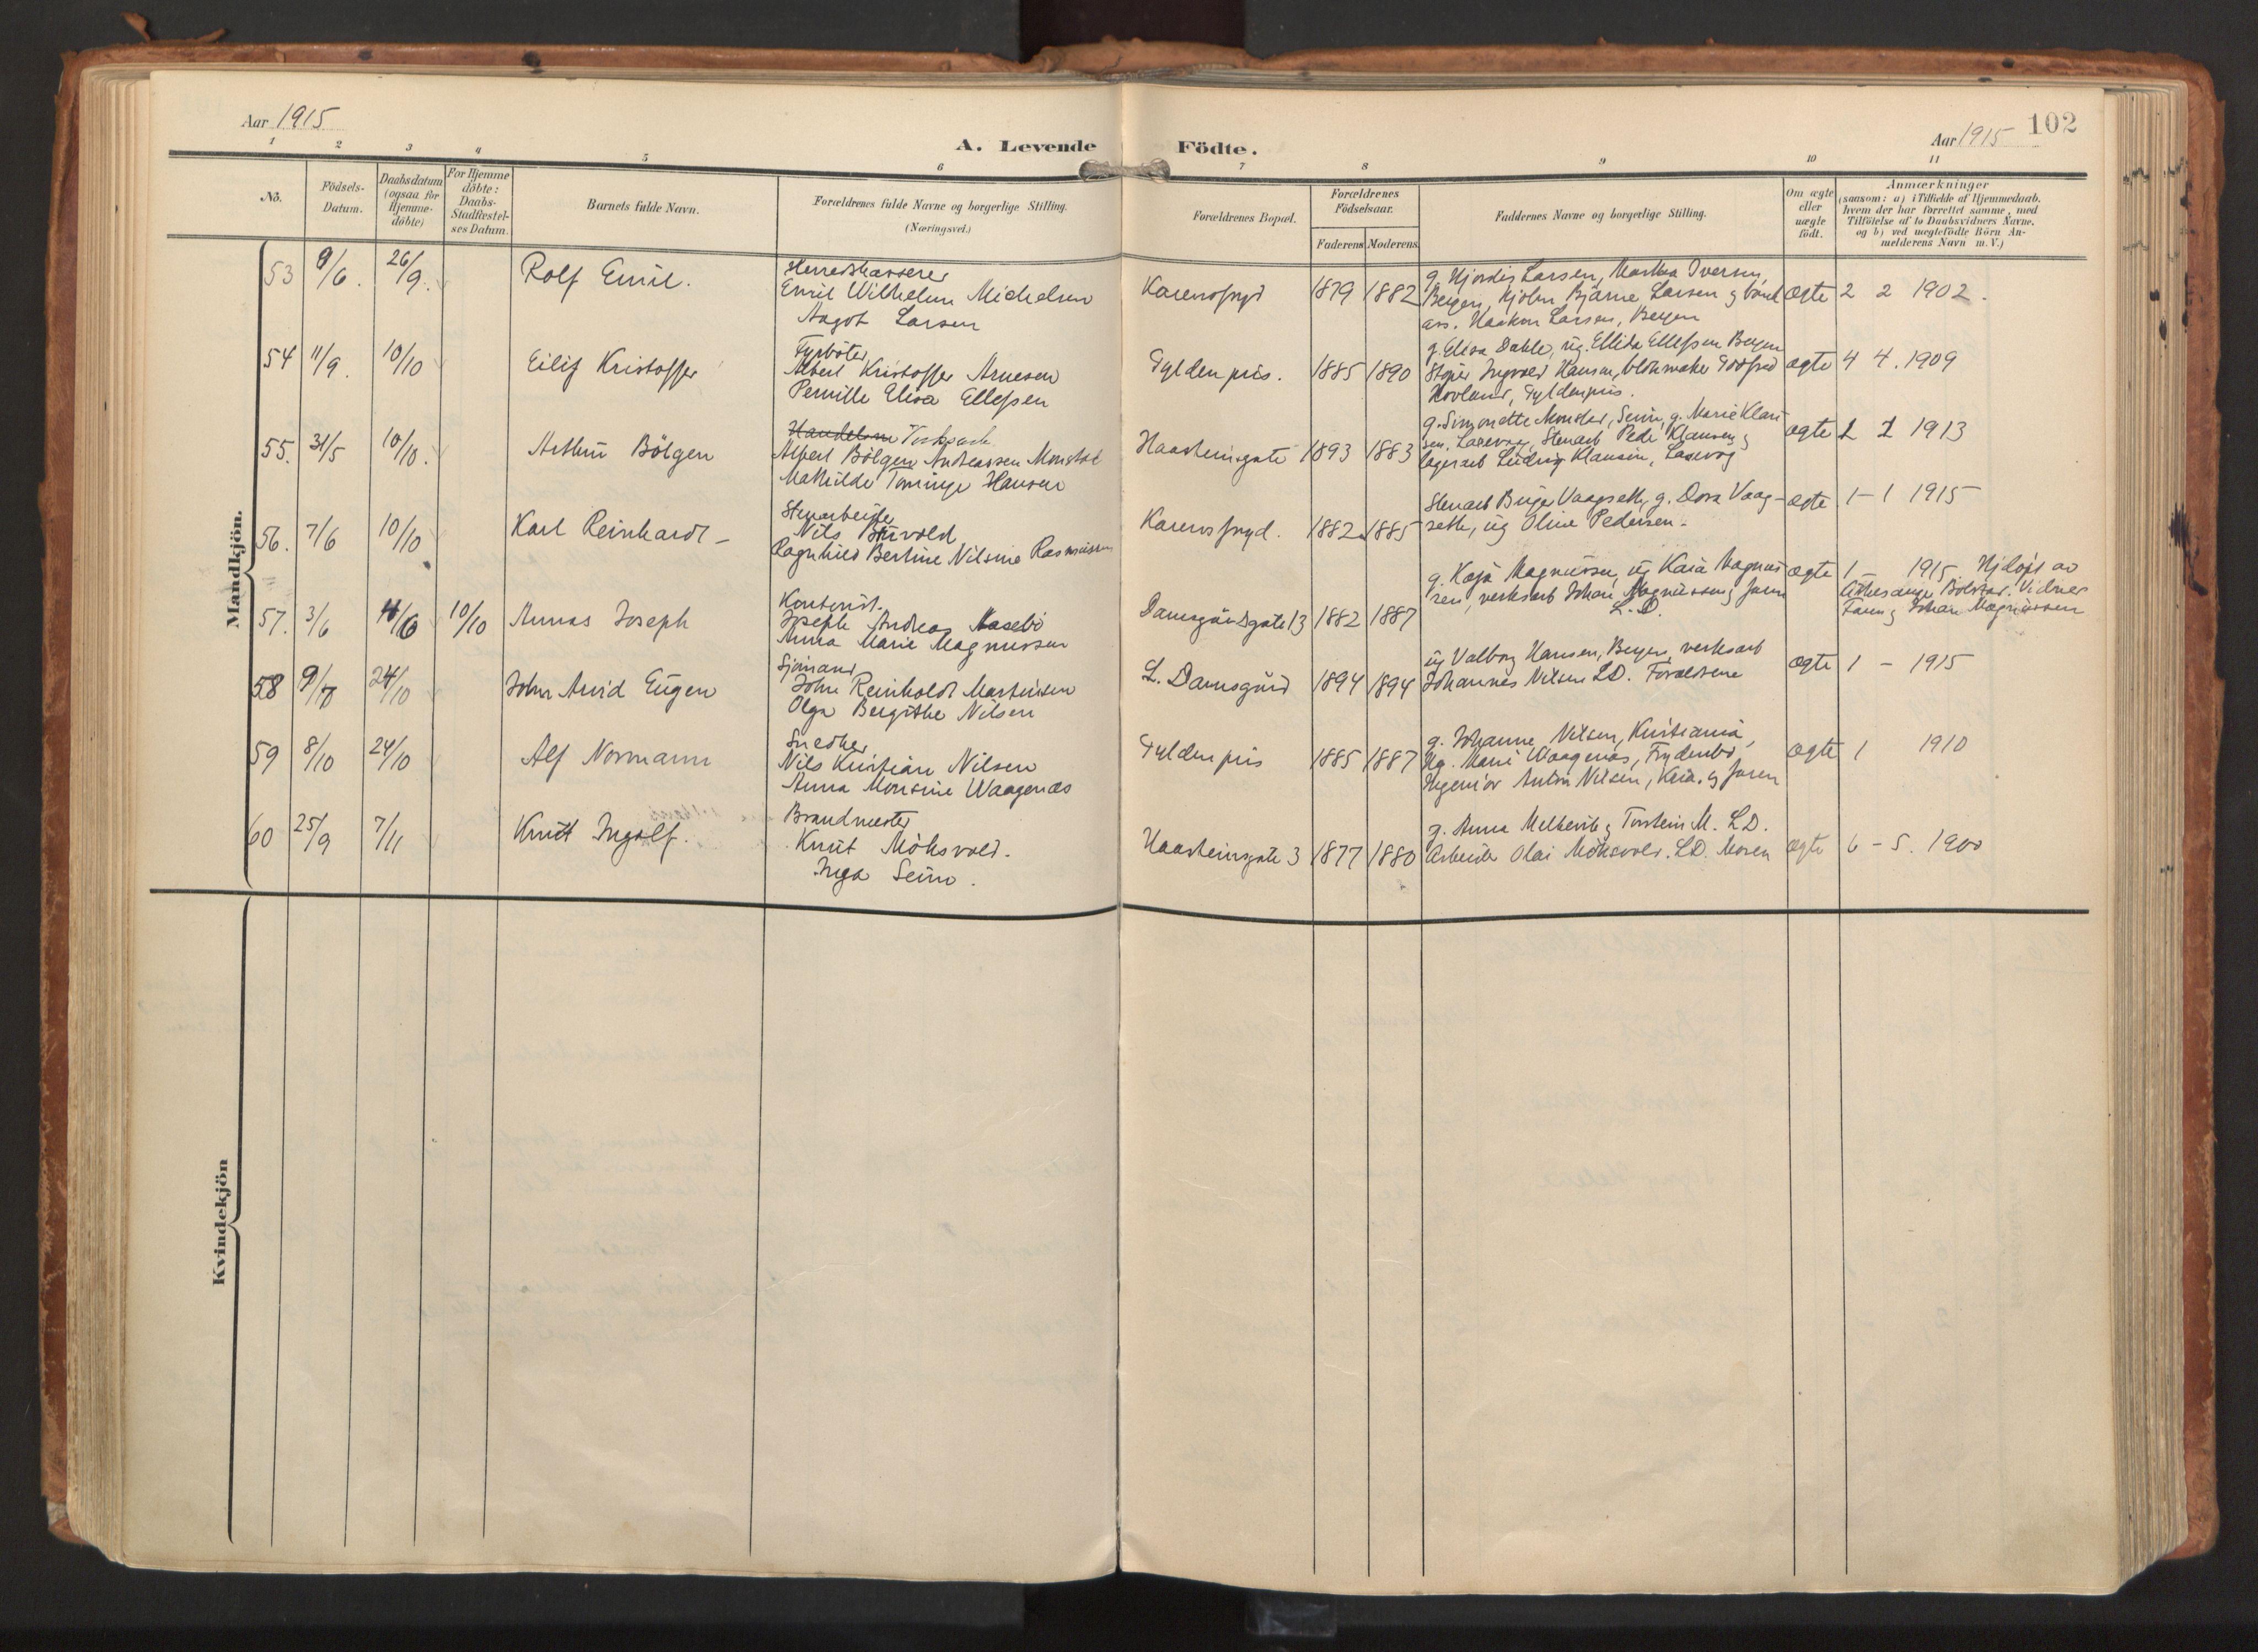 Aar 1915
A. Levende Födte.
Aar 1915 102
1 2 3 4 5 6 7 8 9 10 11
No.
Födsels-
Datum.
Daabsdatum
(ogsaa for
Hjemme-
döbte)
For Hjemme
döbte:
Daabs-
Stadfæstel-
ses Datum.
Barnets fulde Navn.
Forældrenes fulde Navne og borgerlige Stilling.
(Næringsvei.)
Forældrenes Bopæl.
Forældrenes
Födselsaar.
Faderens Moderens
Faddernes Navne og borgerlige Stilling.
Om ægte
eller
uægte
födt.
Anmærkninger
(saasom: a) i Tilfælde af Hjemmedaab,
hvem der har forrettet samme, med
Tilföielse af to Daabsvidners Navne,
og b) ved uægtefödte Börn An-
melderens Navn m. V.)
Mandkjön.
53 9/6. 26/9. Rolf Emil.
Herredskasserer
Emil Wilhelm Michelsen
Aagot Larsen
Karensfryd 1879 1882
g. Hjördis Larsen, Martha Iversen,
Bergen, Bjarne Larsen og bank
ass. Haakon Larsen, Bergen
ægte 2 2 1902.
54 11/9. 10/10 Eilif Kristoffer
Fyrböter
Albert Kristoffer Arnesen
Pernille Elisa Ellefsen
Gyldenpris. 1885 1890
g. Elisa Dahle, ug. Ellida Ellefsen Bergen
Ingvald Hansen, blokmaker Godfred
Hovland, Gyldenpris.
ægte 4 4. 1909
55. 31/5 10/10. Arthur Bölgen
Albert Bölgen Andreassen Monstad
Mathilde Hansen
Haasteinsgate 1893 1883
g. Simonette Monstad, Seim, g. Marie Klau
sen, Laxevaag, Stenarb Peder Klausen og
lagerarb Ludvig Klausen, Laxevog
ægte 1913
56. 7/6 10/10 Karl Reinhardt –
Stenarbeider
Nils
Ragnhild Bertine Nilsine Rasmussen
Karensfryd. 1882 1885
Stenarb Birger Vaagseth, g. Dora Vaag-
seth, ug Oline Pedersen –
ægte 1 – 1 1915
57. 3/6 10/10 Annas Joseph
Kontorist.
Joseph Andreas Aasebö
Anna Marie Magnussen
Damsgårdsgate 13 1882 1887
g. Kaja Magnussen, ug Kaia Magnus
sen, verksarb Johan Magnussen og faren
L. D.
ægte 1 – 1915 Hjdöpt av
Vidner
Faren og Johan Magnussen
58 24/10 John Arvid Eugen
Sjömand
John Reinholdt Martinsen
Olga Bergithe Nilsen
L. Damsgård 1894 1894
ug Valborg Hansen, Bergen, verksarb
Johannes Nilsen LD. Forældrene
ægte 1 – 1915
59 8/10 24/10 Alf Normann
Snedker
Nils Kristian Nilsen
Anna Monsine Waagenæs
Gyldenpris 1885 1887
g. Johanne Nilsen, Kristiania,
Ug. Marie Waagenæs, Frydenbö
Ingeniör Anton Nilsen, Kria. og faren
ægte 1 1910
60 25/9 7/11 Knut Ingolf.
Brandmester
Knut Möksvold.
Inga Seim.
Haasteinsgate 3 1877 1880
g. Anna Melkevik og Torstein M. LD.
Arbeider Olai Möksvold. LD. Moren
ægte 6 – 5. 1900
Kvindekjön